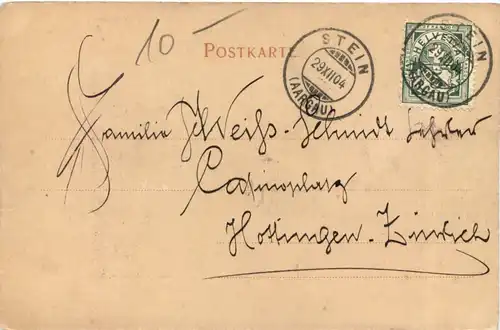 10 -
POSTKARTE
STEIN
29 XII 04
(AARGAU)
HELVETIA
STEIN
(AARGAU)
Familie Weiß-Schmidt Lehrer
Casinoplatz
Hottingen-Zürich